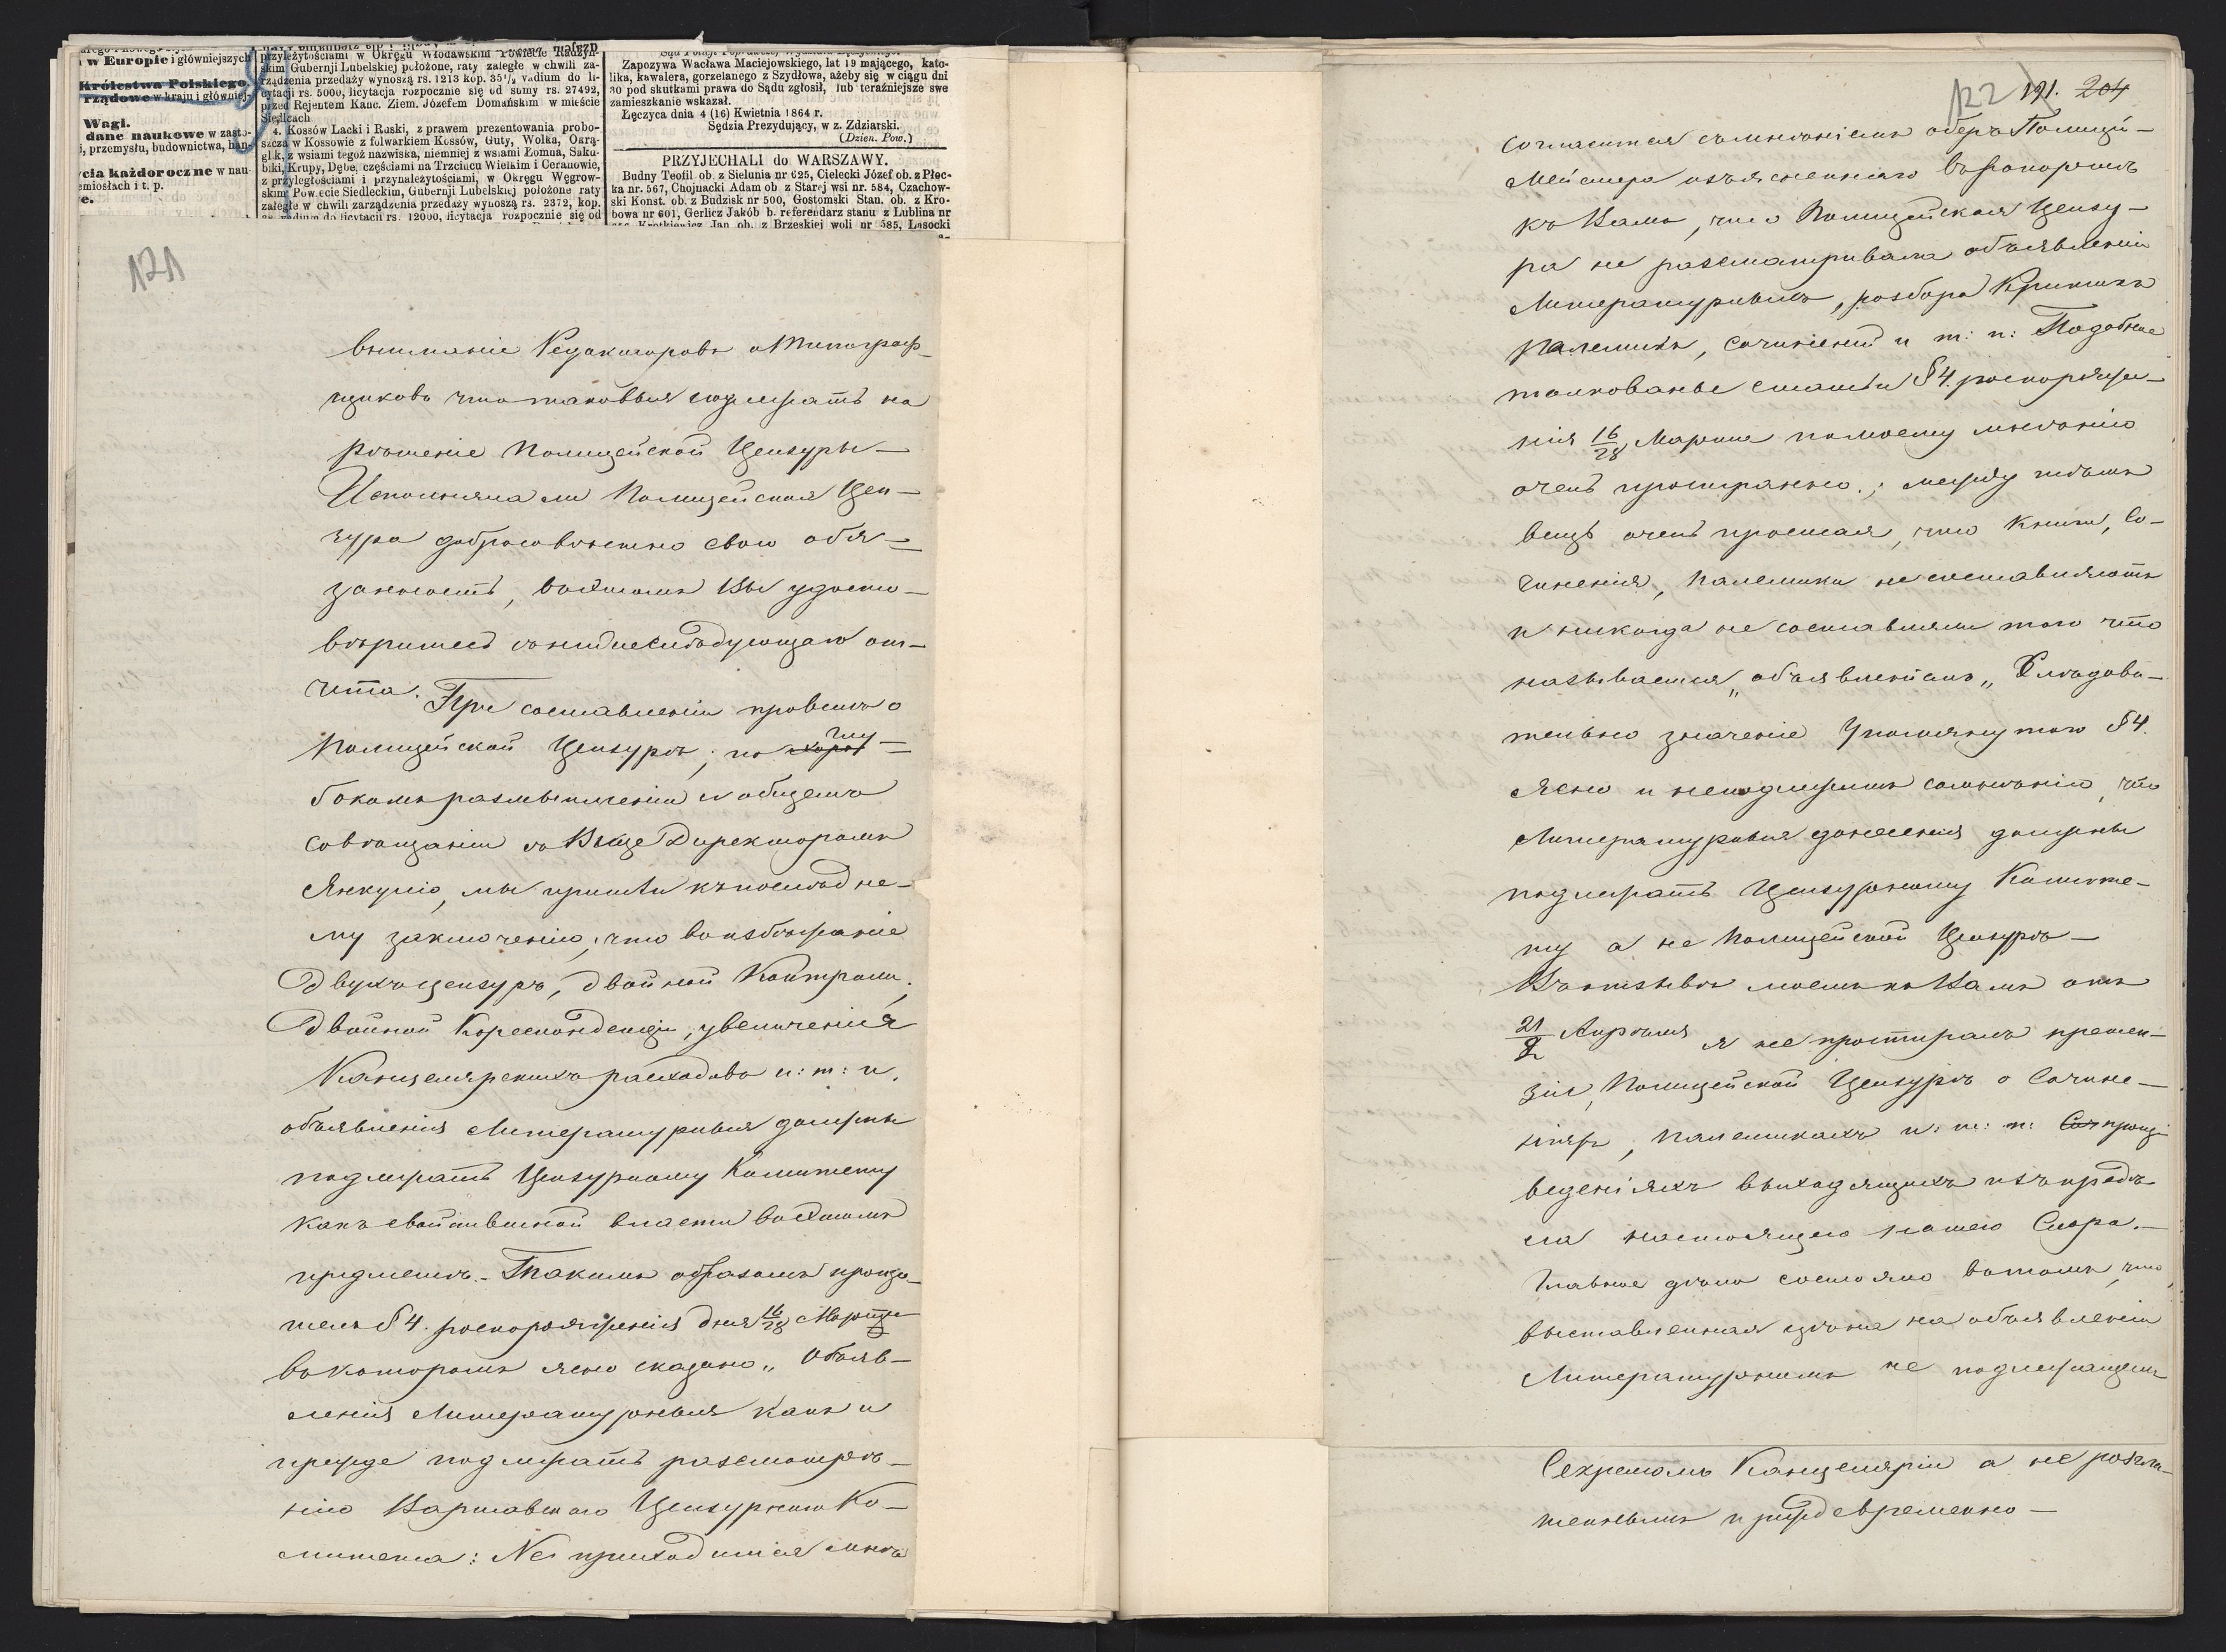 w Europie i główniejszych
Królestwa Polskiego,
rządowe w kraju i główniej-
Wagi.
dane naukowe w zasto-
i, przemysłu, budownictwa, han-
cia każdoroczne w nau-
emiosłach i t. p.
e.
przyległościami w Okręgu Włodawskim Powiecie Radzyń-
skim Gubernji Lubelskiej położone, raty zaległe w chwili za-
rządzenia przedaży wynoszą rs. 1213 kop. 35½ vadium do li-
cytacji rs. 5000, licytacja rozpocznie się od sumy rs. 27492,
przed Rejentem Kanc. Ziem. Józefem Domańskim w mieście
Siedlcach
4. Kossów Lacki i Ruski, z prawem prezentowania probo-
szcza w Kossowie z folwarkiem Kossów, Guty, Wólka, Oxrą-
glik, z wsiami tegoż nazwiska, niemniej z wsiami Łomna, Saku-
biki, Krupy, Dębe, częściami na Trzcińcu Wielkim i Ceranowie,
z przyległościami i przynależytościami, w Okręgu Węgrow-
skim Powiecie Siedleckim, Gubernji Lubelskiej położone raty
zaległe w chwili zarządzenia przedaży wynoszą rs. 2372, kop.
vadium do licytacji rs. 12000, licytacja rozpocznie się od
Zapozywa Wacława Maciejowskiego, lat 19 mającego, kato-
lika, kawalera, gorzelanego z Szydłowa, ażeby się w ciągu dni
30 pod skutkami prawa do Sądu zgłosił, lub teraźniejsze swe
zamieszkanie wskazał.
Łęczyca dnia 4 (16) Kwietnia 1864 r.
Sędzia Prezydujący, w z. Zdziarski.
(Dzien. Pow.)
PRZYJECHALI do WARSZAWY.
Budny Teofil ob. z Sielunia nr 625, Cielecki Józef ob. z Płoc-
ka nr. 567, Chojnacki Adam ob z Starej wsi nr. 584, Czachow-
ski Konst. ob. z Budzisk nr 500, Gostomski Stan. ob. z Kro-
bowa nr 601, Gerlicz Jakób b. referendarz stanu z Lublina nr
Krotkiewicz Jan ob. z Brzeskiej woli nr 585, Lasocki
121
вниманіе Редакторовъ и Типограф-
щиковъ что таковыя подлежатъ на
рѣшеніе Полицейской Цензуры —
Исполняла ли Полицейская Цен-
зура добросовѣстно свою обя-
занность, въ этомъ Вы удосто-
вѣритесь съ нижеслѣдующаго от-
чета. При составленіи проекта о
Полицейской Цензурѣ, по глу-
бокомъ размышленіи и общемъ
совѣщаніи съ Вице Директоромъ
Янкуліо, мы пришли къ послѣдне-
му заключенію, что во избѣжаніе
двухъ цензуръ, двойной Контроли,
Двойной Кореспонденціи, увеличенія
Канцелярскихъ расходовъ и: т: п.
объявленія Литературныя должны
подлежать Цензурному Комитету
какъ свойственной власти въ этомъ
предметѣ. – Такимъ образомъ
§ 4. роспоряженія дня 16/28 Марта
въ которомъ ясно сказано „Объяв-
ленія Литературныя какъ и
прежде подлежатъ разсмотрѣ-
нію Варшавскаго Цензурнаго Ко-
митета: Не приходится мнѣ
122 191. 204
согласиться съ мнѣніемъ оберъ Полицій-
мейстера изъясненнаго въ рапортѣ
къ Вамъ, что Полицейская Цензу-
ра не разсматривала объявленіи
Литературныхъ, разбора Критикъ
полемикъ, сочиненій и т: п: Подобное
толкованье статьи § 4. роспоряже-
нія 16/28 Марта по моему мнѣнію
очень пространно; между тѣмъ
вещь очень простая, что Книги, Со-
чиненія, Полемики не составляютъ
и никогда не составляли того что
называется „объявленіемъ„ Слѣдова-
тельно значеніе Упомянутого § 4.
ясно и неподлежитъ сомнѣнію, что
Литературныя донесенія должны
подлежать Цензурному Комите-
ту а не Полицейской Цензурѣ —
Въ отзывѣ моемъ къ Вамъ отъ
21/ Апрѣля я не простиралъ претен-
зіи, Полицейской Цензурѣ о Сочине-
ніяхъ, полемикахъ и: т: п: произ-
веденіяхъ выходящихъ изъ предѣ-
ла настоящего нашего Спора. —
Главное дѣло состояло въ томъ, что
выставленная цѣна на объявленіи
Литературномъ не подлежащемъ
Секретомъ Канцеляріи а не
преждевременно —